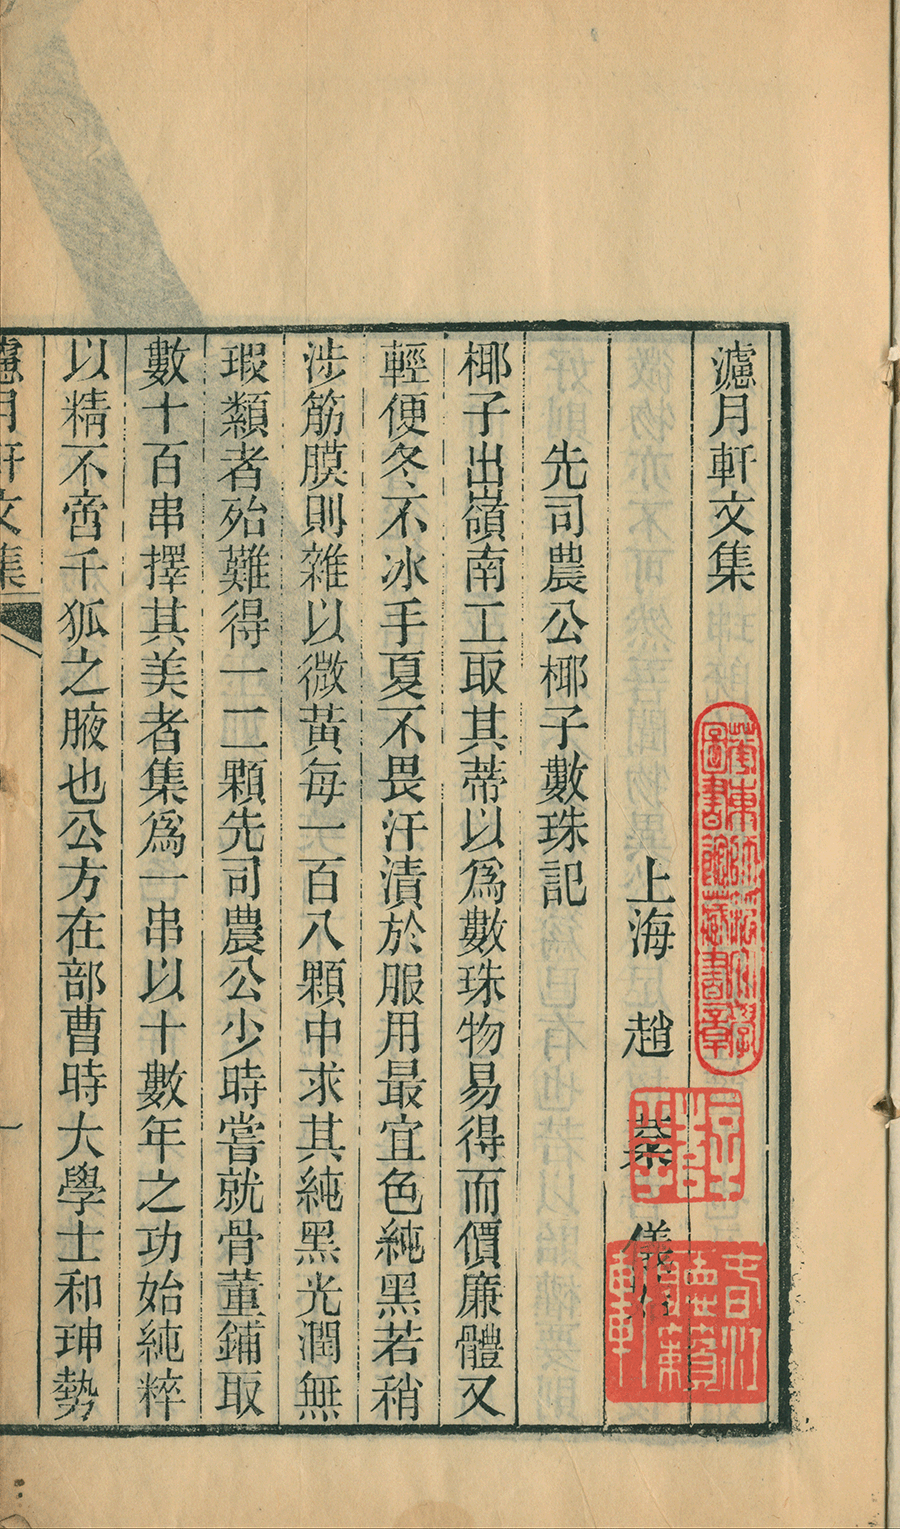 濾月軒文集
上海 趙 棻 儀姞
先司農公椰子數珠記
椰子出嶺南工取其蒂以爲數珠物易得而價廉體又
輕便冬不冰手夏不畏汗漬於服用最宜色純黑若稍
涉筋膜則雜以微黃每一百八顆中求其純黑光潤無
瑕纇者殆難得一二顆先司農公少時嘗就骨董鋪取
數十百串擇其美者集爲一串以十數年之功始純粹
以精不啻千狐之腋也公方在部曹時大學士和珅勢
濾月軒文集
一
華東師範大學圖書館藏書章